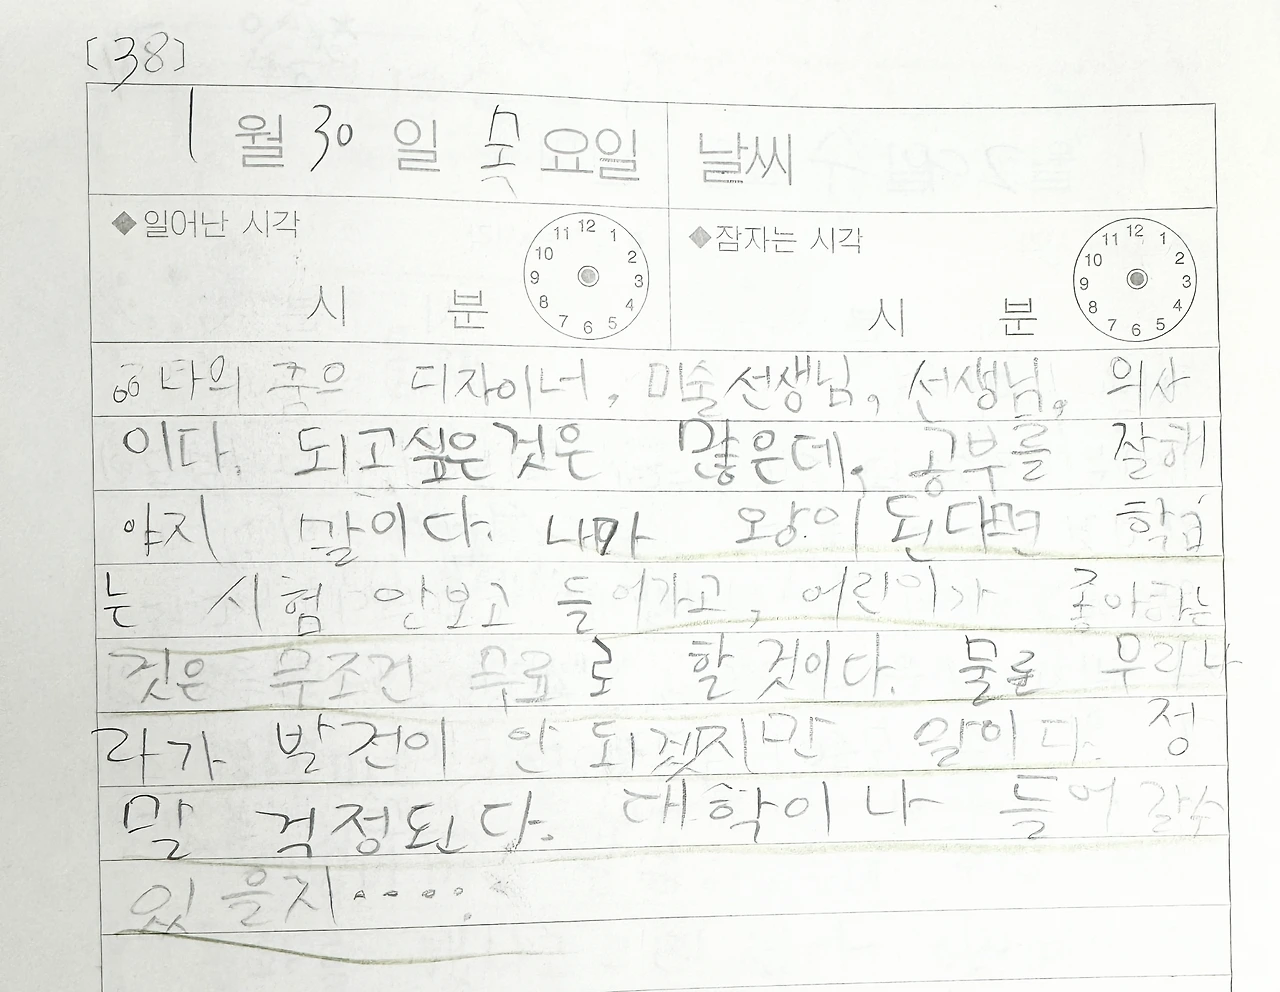 [38]
1월 30일 목요일 날씨
◆일어난 시각 ◆잠자는 시각
11 12 1 10 2 9 3 8 4 7 6 5
11 12 1 10 2 9 3 8 4 7 6 5
시 분 시 분
나의 꿈은 디자이너, 미술선생님, 선생님, 의사
이다. 되고싶은것은 많은데, 공부를 잘해
야지 말이다. 내가 왕이 된다면 학교
는 시험 안보고 들어가고, 어린이가 좋아하는
것은 무조건 무료로 할 것이다. 물론 우리나
라가 발전이 안 되겠지만 말이다. 정
말 걱정된다. 대학이나 들어갈수
있을지.....